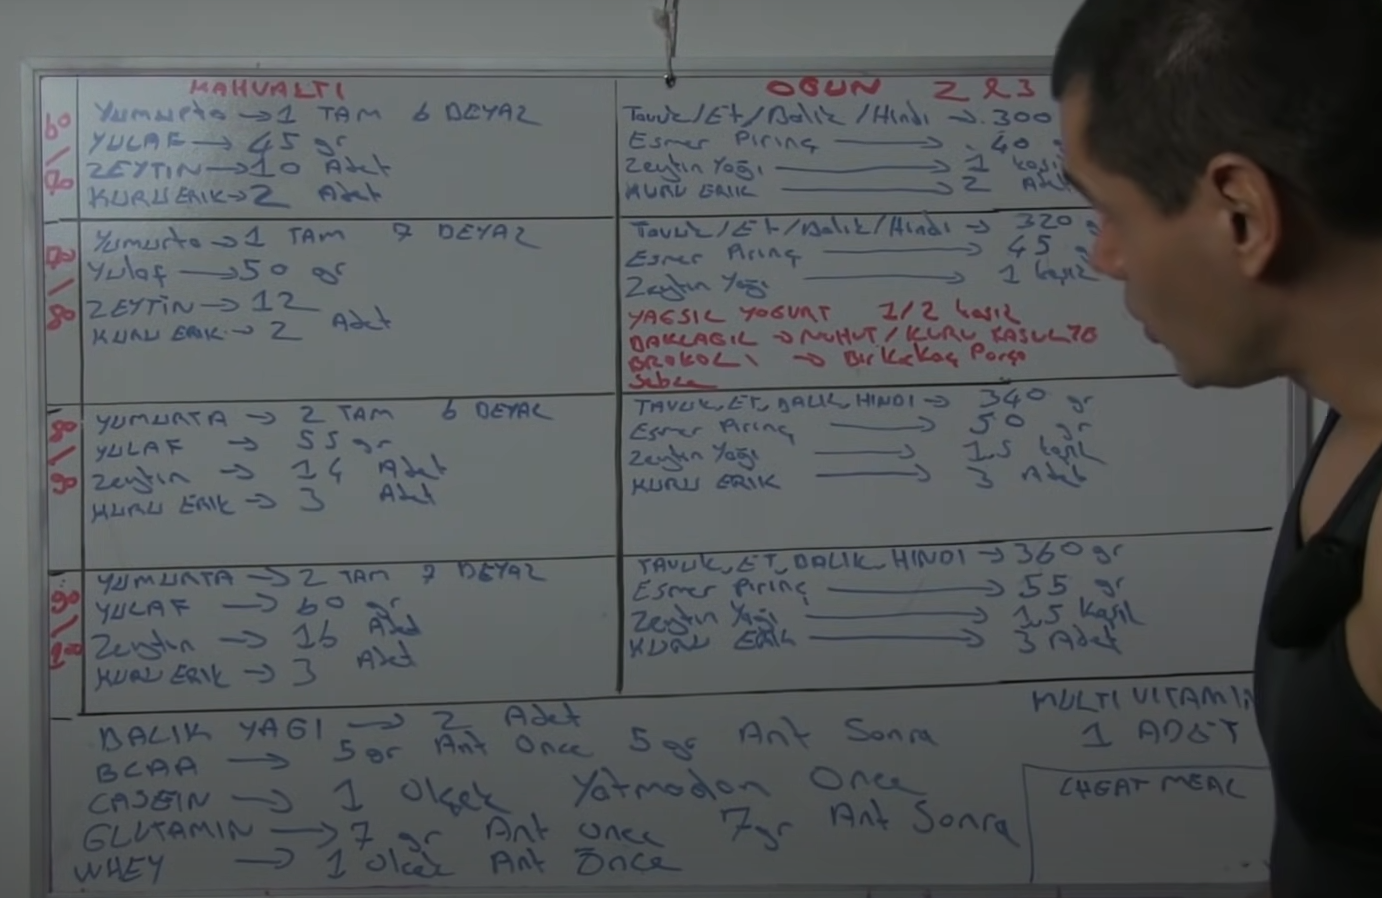 KAHVALTI
Yumurta → 1 TAM 6 BEYAZ
YULAF → 45 gr
ZEYTİN → 10 Adet
KURU ERIK → 2 Adet
Yumurta → 1 TAM 7 BEYAZ
Yulaf → 50 gr
ZEYTİN → 12
KURU ERIK → 2 Adet
YUMURTA → 2 TAM 6 BEYAZ
YULAF → 55 gr
Zeytin → 14 Adet
KURU ERIK → 3 Adet
YUMURTA → 2 TAM 7 BEYAZ
YULAF → 60 gr
Zeytin → 16 Adet
KURU ERIK → 3 Adet
OGUN 2 & 3
Tavuk/Et/Balik/Hindi → 300
Esmer Pirinç → 40 g
Zeytin Yağı → 1 kaşık
KURU ERIK → 2 Adet
Tavuk/Et/Balik/Hindi → 320 g
Esmer Pirinç → 45 g
Zeytin Yağı → 1 kaşık
YAGSIZ YOGURT 1/2 kaşık
BAKLAGIL → NOHUT/KURU FASULYE
BROKOLI → Bir Kaç Parça
Sebze
TAVUK, ET, BALIK, HINDI → 340 gr
Esmer Pirinç → 50 gr
Zeytin Yağı → 1.5 kaşık
KURU ERIK → 3 Adet
TAVUK, ET, BALIK, HINDI → 360 gr
Esmer Pirinç → 55 gr
Zeytin Yağı → 1.5 Kaşık
KURU ERIK → 3 Adet
BALIK YAGI → 2 Adet
BCAA → 5 gr Ant Once 5 gr Ant Sonra
CASEIN → 1 Olçek Yatmadan Once
GLUTAMIN → 7 gr Ant Once 7gr Ant Sonra
WHEY → 1 Olcek Ant Önce
MULTI VITAMIN
1 ADET
CHEAT MEAL